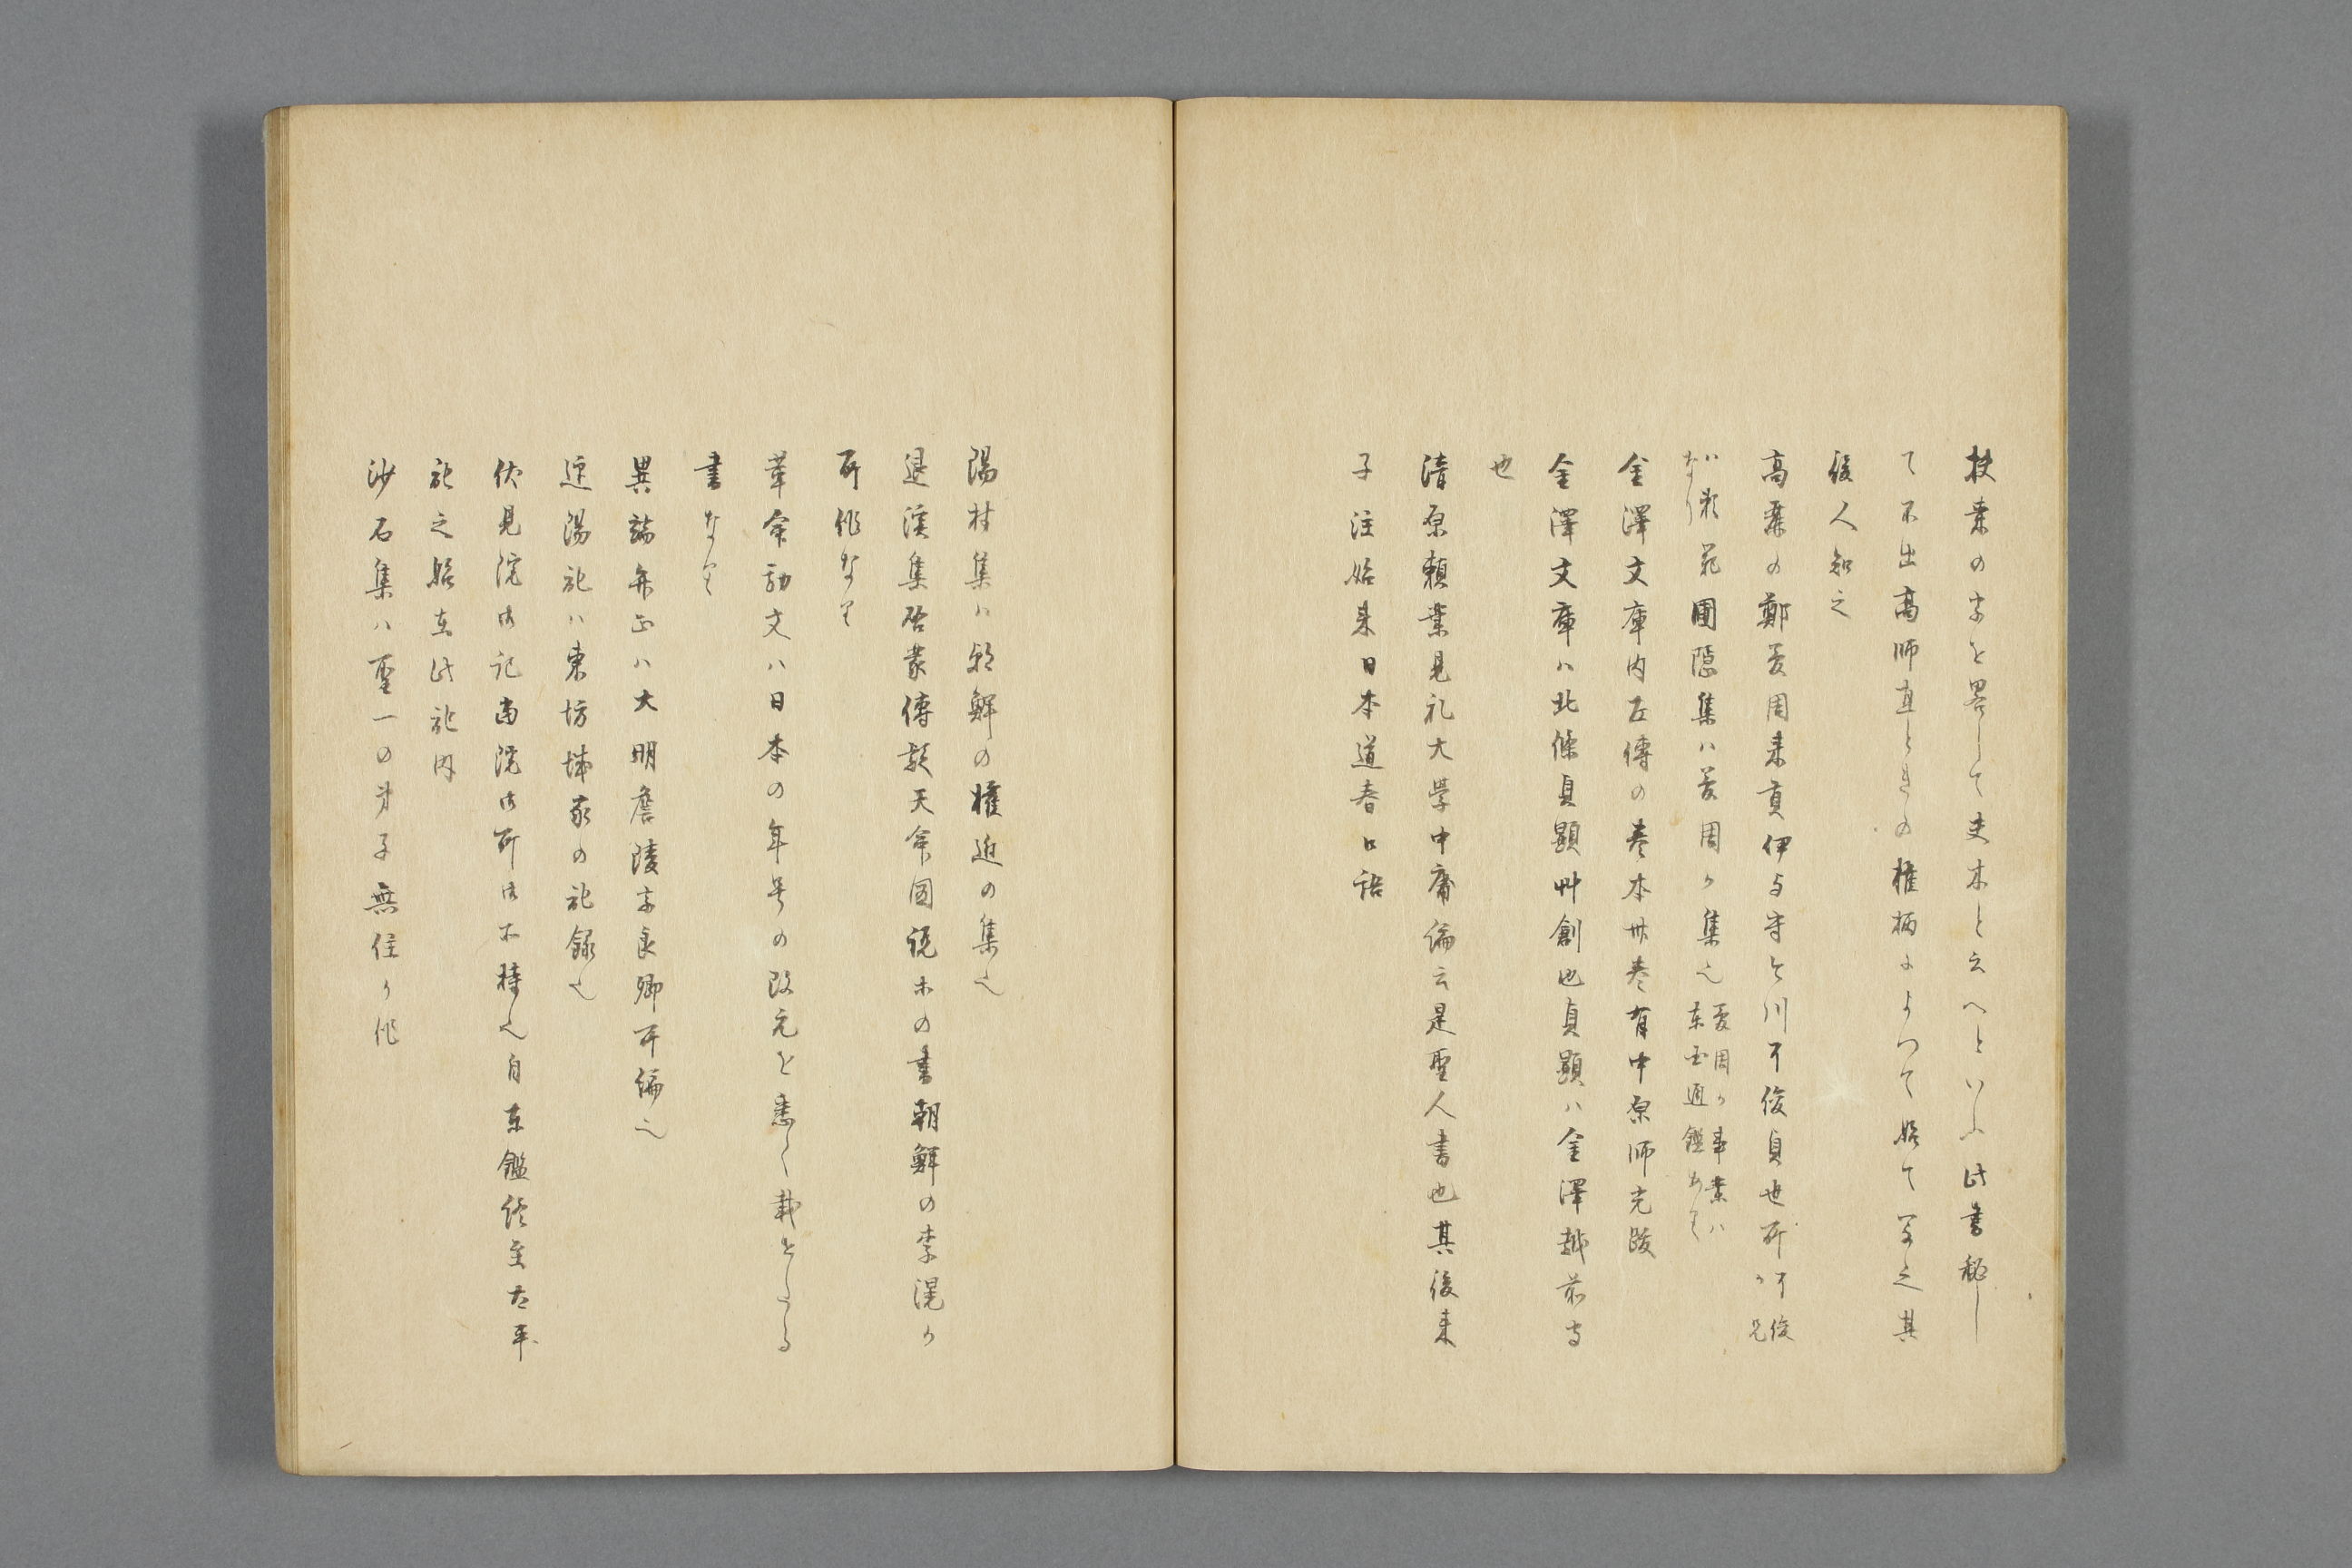 扶桒の字を畧して夫木と云へといふ此書秘し
て不出高師直ときの権柄によつて始て写之其
後人知之
高麗の鄭夢周来貢伊与守今川了俊貞世所
ハ彩苑圃隠集ハ夢周か集也
夢周か事業ハ
東国通鑑あり
なり
金澤文庫内左傳の巻本卅巻有中原師光跋
金澤文庫ハ北條貞顕艸創也貞顕ハ金澤越前守
也
清原頼業見礼大學中庸偏云是聖人書也其後朱
子注始来日本道春口語
陽村集ハ朝鮮の権近の集也
退溪集啓蒙傳疑天命図説ホの書朝鮮の李滉か
所作なり
革命勘文ハ日本の年号の改元を悉く載をたる
書なり
異端弁正ハ大明詹陵字良卿所偏也
迎陽記ハ東坊城家の記録也
伏見院御記両院御所御不持也自東鑑終至太平
記之始在此記内
沙石集ハ聖一の弟子無住か作